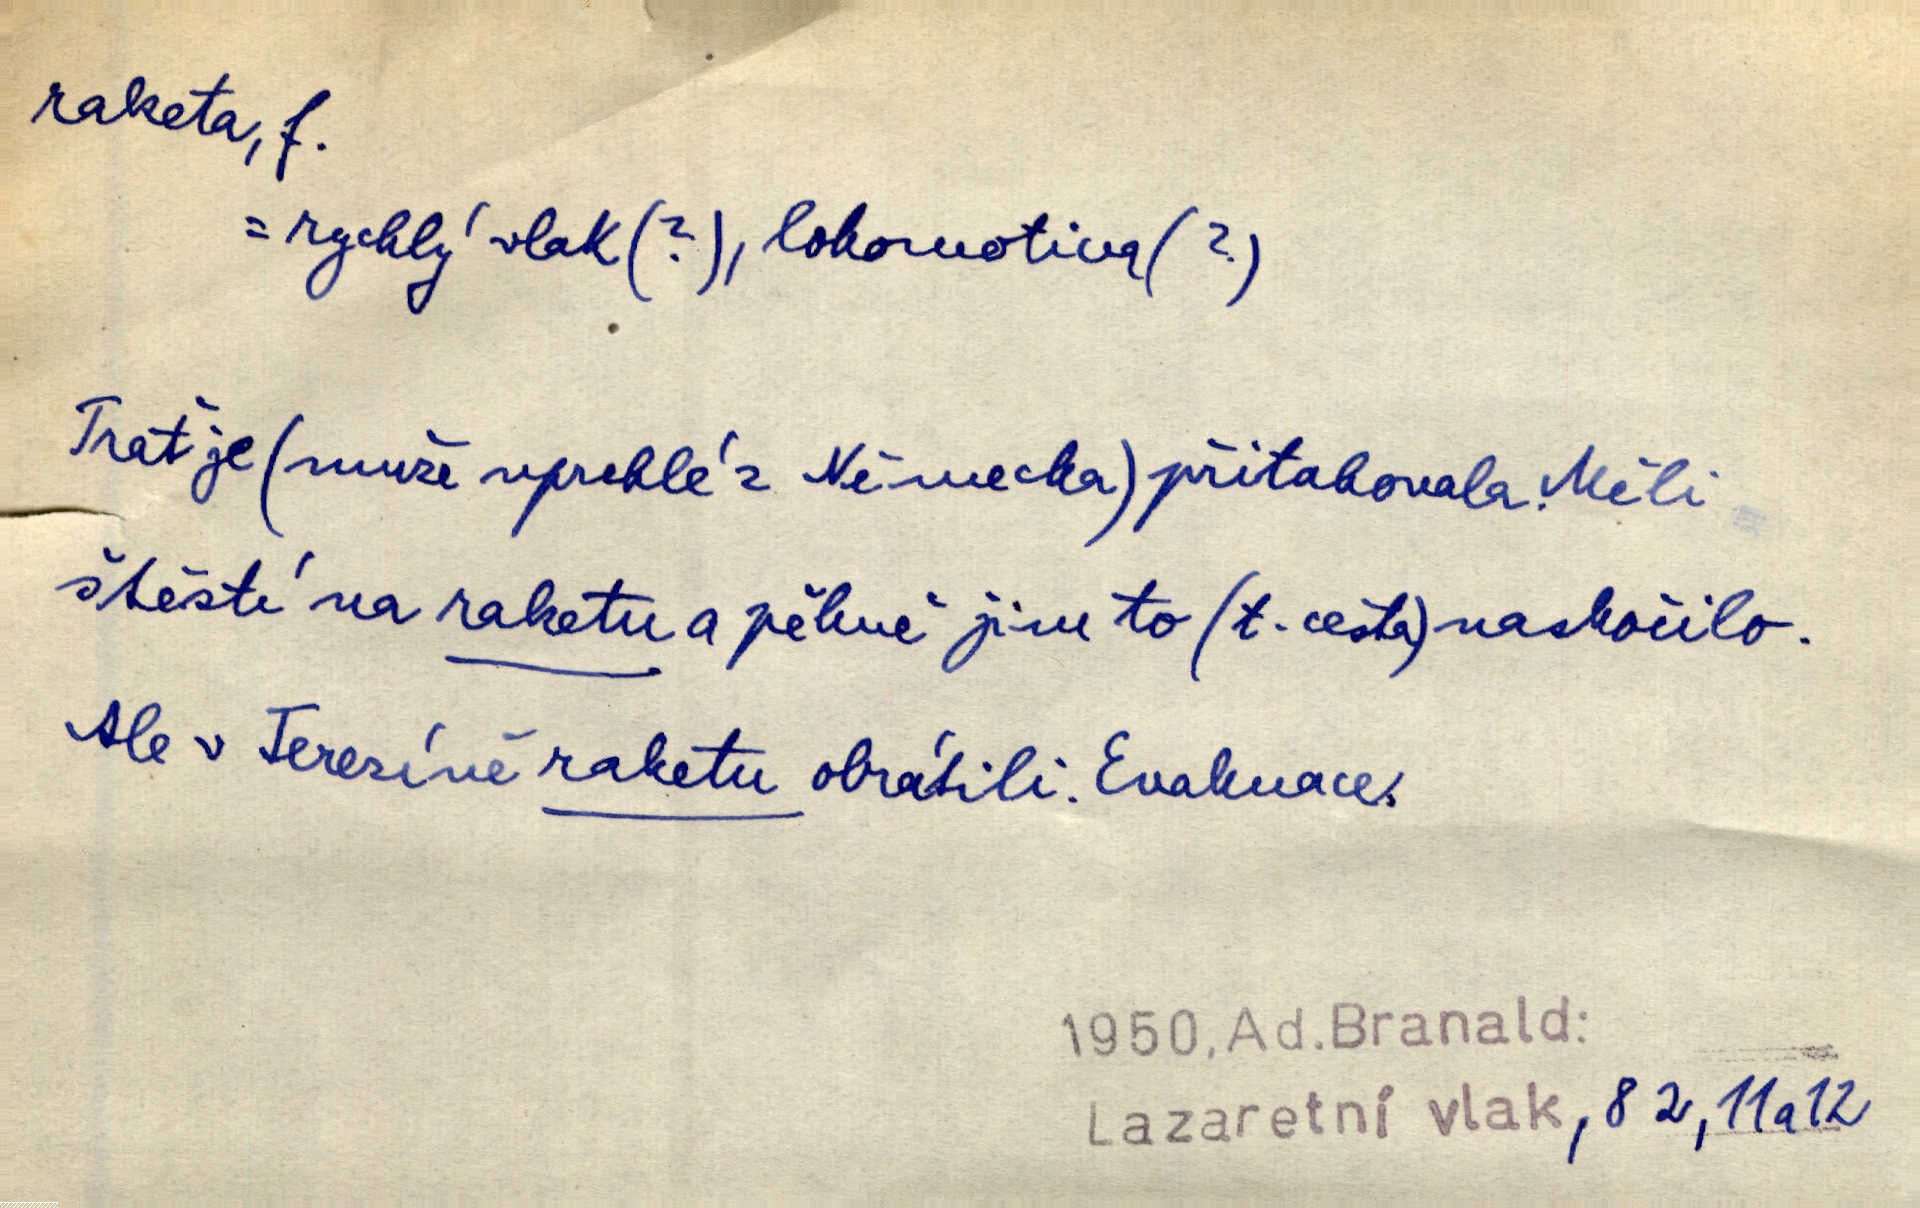 raketa, f.
= rychlý vlak (?), lokomotiva (?)
Trať je (muže uprchlé z Německa) přitahovala. Měli
štěstí na raketu a pěkně jim to (t. cesta) naskočilo.
Ale v Terezíně raketu obrátili. Evakuace.
1950, Ad. Branald:
Lazaretní vlak, 82, 11 a 12